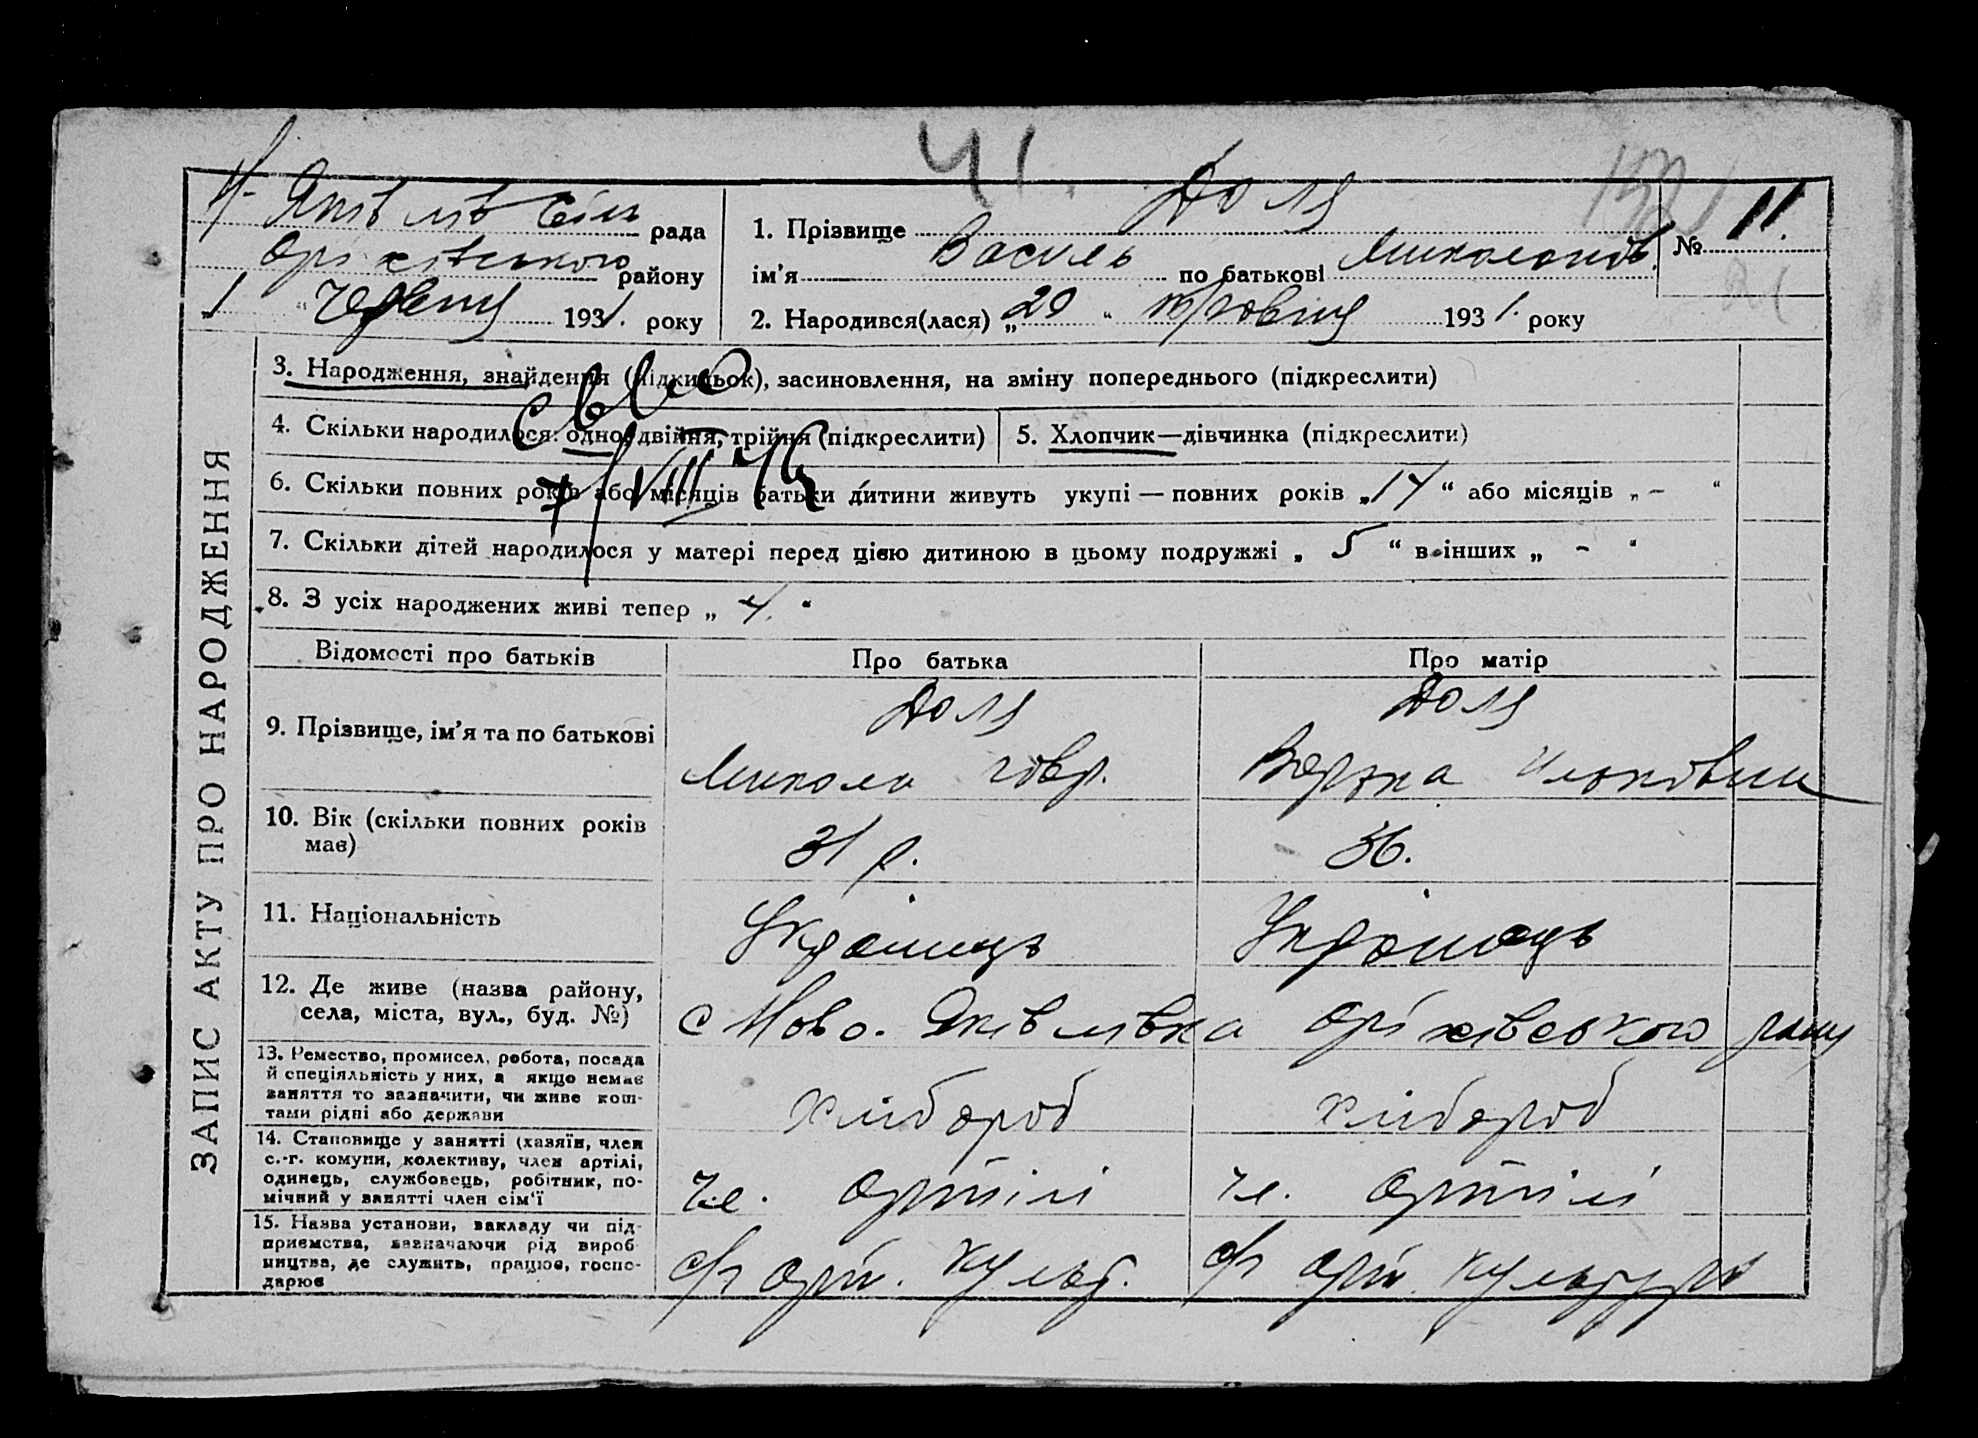 41.
Н-Яківлів сіль рада
Оріхівського району
1 " Червня 1931. року
1. Прізвище Доля
ім'я Василь по батькові Миколаєвич.
№ 11.
2. Народився(лася) „ 20 " травня 1931. року
ЗАПИС АКТУ ПРО НАРОДЖЕННЯ
3. Народження, знайдення (підкидьок), засиновлення, на зміну попереднього (підкреслити)
4. Скільки народилося: одно, двійня, трійня (підкреслити)
5. Хлопчик—дівчинка (підкреслити)
7/VIII 46
6. Скільки повних років або місяців батьки дитини живуть укупі — повних років „ 14 “ або місяців „ – “
7. Скільки дітей народилося у матері перед цією дитиною в цьому подружжі „ 5 “ в інших „ – “
8. З усіх народжених живі тепер „ 4. “
Відомості про батьків Про батька Про матір
9. Прізвище, ім'я та по батькові
Доля
Микола Гавр.
Доля
10. Вік (скільки повних років
має)
31 р. 36.
11. Національність Українець Українець
12. Де живе (назва району,
села, міста, вул., буд. №)
с Ново-Яківлівка Оріхівського рану
13. Ремество, промисел, робота, посада
й спеціяльність у них, а якщо немає
заняття то зазначити, чи живе кош-
тами рідні або держави
хлібороб хлібороб
14. Становище у занятті (хазяїн, член
с.-г. комуни, колективу, член артілі,
одинець, службовець, робітник, по-
мічний у занятті член сім'ї
чл. артілі чл. артілі
15. Назва установи, закладу чи під-
приємства, зазначаючи рід вироб-
ництва, де служить, працює, госпо-
дарює
с/г арт. культ. с/г арт. культура